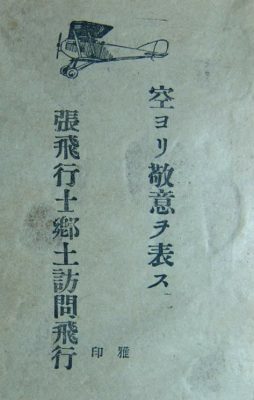 空ヨリ敬意ヲ表ス
張飛行士郷土訪問飛行
雅印